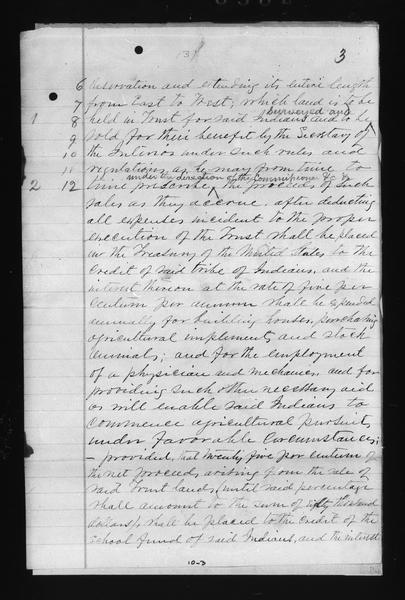 3
3
6 reservation and extending its entire length
7 from East to West; which land is to be
surveyed and
1 8 held in Trust for said Indians and to be
9 sold for their benefit by the Secretary of
10 the Interior under such rules and
11 regulations as he may from time to
under the direction of the Commissioner
2 12 time prescribe, the proceeds of such
sales as they accrue, after deducting
all expenses incident to the proper
execution of the Trust shall be placed
in the Treasury of the United States to the
credit of said tribe of Indians, and the
interest thereon at the rate of five per
centum per annum shall be expended
annually for building houses, purchasing
agricultural implements and stock
animals; and for the employment
of a physician and mechanics, and for
providing such other necessary aid
as will enable said Indians to
commence agricultural pursuits
under favorable circumstances;
- provided, that twenty five per centum of
the net proceeds arising from the sale of
said Trust lands, (until said percentage
shall amount to the sum of fifty thousand
dollars), shall be placed to the credit of the
school fund of said Indians, and the interest
10-3